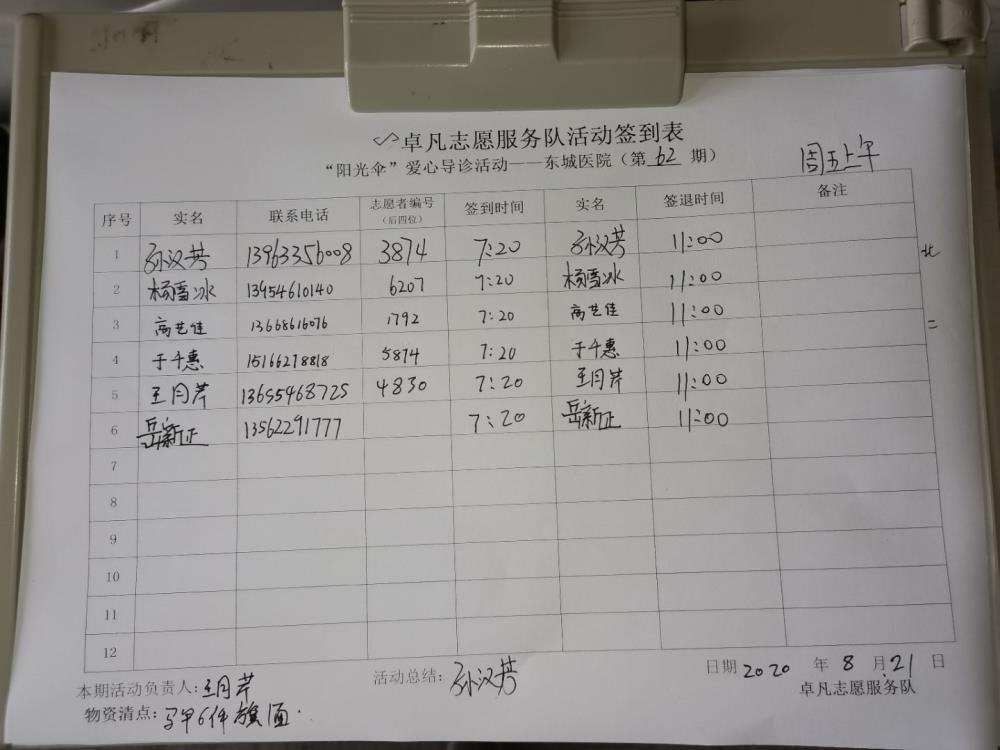 卓凡志愿服务队活动签到表
“阳光伞”爱心导诊活动——东城医院（第 62 期） 周五上午
序号 实名 联系电话 志愿者编号（后四位） 签到时间 实名 签退时间 备注
1 孙汉芳 13963356008 3874 7:20 孙汉芳 11:00
2 杨雪冰 13954610140 6207 7:20 杨雪冰 11:00
3 高艺佳 13668616076 1792 7:20 高艺佳 11:00
4 于千惠 15166278818 5874 7:20 于千惠 11:00
5 王月芹 13655468725 4830 7:20 王月芹 11:00
6 岳新正 13562291777 7:20 岳新正 11:00
7
8
9
10
11
12
本期活动负责人：王月芹 活动总结：孙汉芳 日期 2020 年 8 月 21 日
物资清点：马甲6件 旗1面 卓凡志愿服务队